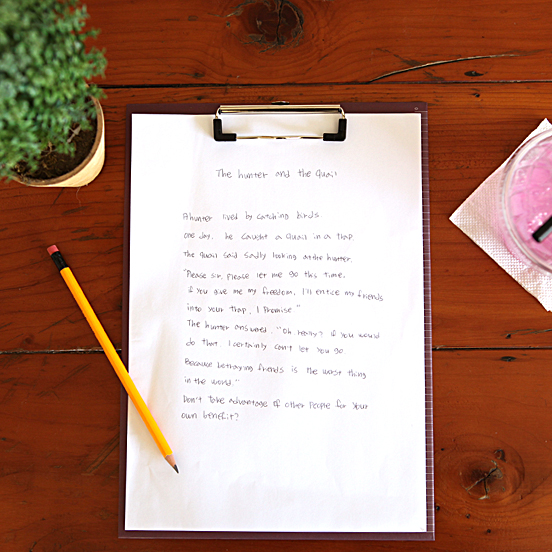 The hunter and the Quail
A hunter lived by catching birds.
One day, he caught a Quail in a trap.
The quail said sadly looking at the hunter.
"Please sir, Please let me go this time.
if you give me my freedom, I'll entice my friends
into your trap, I Promise"
The hunter answered, "Oh really? if you would
do that, I certainly can't let you go.
Because betraying friends is the worst thing
in the world."
Don't take advantage of other People for your
own benefit?